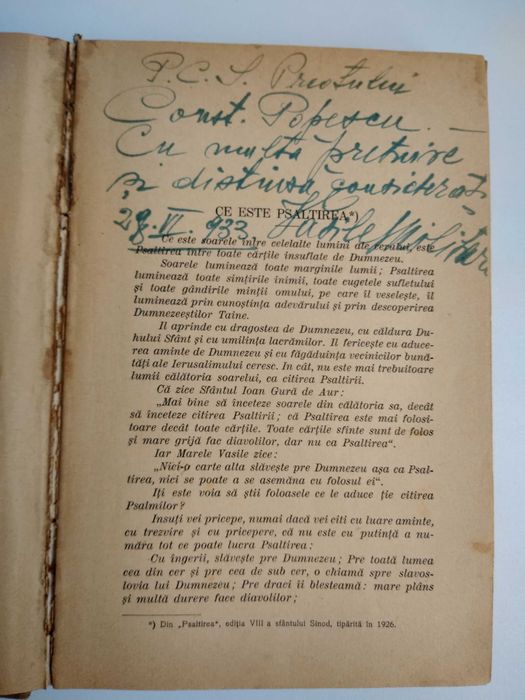 P. C. S. Preotului
Const. Popescu. —
Cu multă prețuire
și distinsă considerați
CE ESTE PSALTIREA*)
28. VI. 933. Vasile
Ce este soarele între celelalte lumini ale cerului, este
Psaltirea între toate cărțile insuflate de Dumnezeu.
Soarele luminează toate marginile lumii; Psaltirea
luminează toate simțirile inimii, toate cugetele sufletului
și toate gândirile minții omului, pe care îl veselește, îl
luminează prin cunoștința adevărului și prin descoperirea
Dumnezeeștilor Taine.
Îl aprinde cu dragostea de Dumnezeu, cu căldura Du-
hului Sfânt și cu umilința lacrămilor. Îl fericește cu aduce-
rea aminte de Dumnezeu și cu făgăduința vecinicilor bună-
tăți ale Ierusalimului ceresc. In cât, nu este mai trebuitoare
lumii călătoria soarelui, ca citirea Psaltirii.
Că zice Sfântul Ioan Gură de Aur:
„Mai bine să înceteze soarele din călătoria sa, decât
să înceteze citirea Psaltirii; că Psaltirea este mai folosi-
toare decât toate cărțile. Toate cărțile sfinte sunt de folos
și mare grijă fac diavolilor, dar nu ca Psaltirea“.
Iar Marele Vasile zice:
„Nici-o carte alta slăvește pre Dumnezeu așa ca Psal-
tirea, nici se poate a se asemăna cu folosul ei“.
Iți este voia să știi foloasele ce le aduce ție citirea
Psalmilor?
Insuți vei pricepe, numai dacă vei citi cu luare aminte,
cu trezvire și cu pricepere, că nu este cu putință a nu-
măra tot ce poate lucra Psaltirea:
Cu îngerii, slăvește pre Dumnezeu; Pre toată lumea
cea din cer și pre cea de sub cer, o chiamă spre slavos-
lovia lui Dumnezeu; Pre draci îi blesteamă: mare plâns
și multă durere face diavolilor;
*) Din „Psaltirea“, ediția VIII a sfântului Sinod, tipărită în 1926.